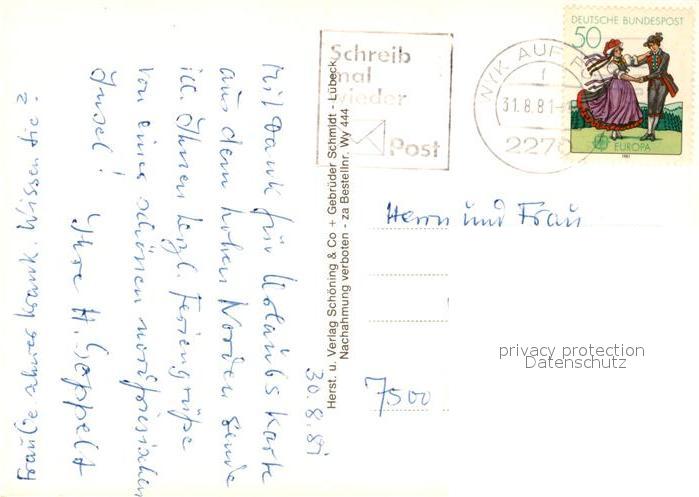 30.8.81
Mit Dank für Urlaubskarte
aus dem hohen Norden sende
ich Ihnen herzl. Feriengrüße
von einer schönen nordfriesischen
Insel!
Ihre H. Goppelt
Frau ... schwer krank. Wissen Sie?
Herst. u. Verlag Schöning & Co + Gebrüder Schmidt - Lübeck
Nachahmung verboten - za Bestellnr. Wy 444
Schreib
mal
wieder
Post
WYK AUF FÖHR
1
31.8.81
2270
DEUTSCHE BUNDESPOST
50
EUROPA
1981
Herrn und Frau
privacy protection
Datenschutz
7500